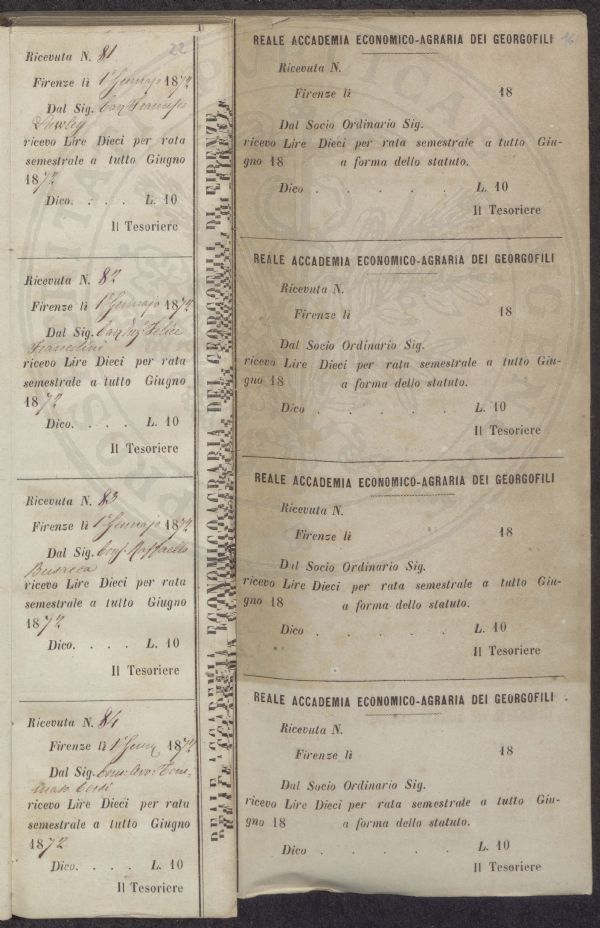 22
Ricevuta N. 81
Firenze lì 1° Gennajo 1872
Dal Sig. Cav. Francesco
ricevo Lire Dieci per rata
semestrale a tutto Giugno
1872
Dico. . . . L. 10
Il Tesoriere
Ricevuta N. 82
Firenze lì 1° Gennajo 1872
Dal Sig. Cav. Ing. Felice
Francolini
ricevo Lire Dieci per rata
semestrale a tutto Giugno
1872
Dico. . . . L. 10
Il Tesoriere
Ricevuta N. 83
Firenze lì 1° Gennajo 1872
Dal Sig. Raffaello
Busacca
ricevo Lire Dieci per rata
semestrale a tutto Giugno
1872
Dico. . . . L. 10
Il Tesoriere
Ricevuta N. 84
Firenze lì 1° Genn. 1872
Dal Sig. Com: Avv: Tom-
maso Corsi
ricevo Lire Dieci per rata
semestrale a tutto Giugno
1872
Dico. . . . L. 10
Il Tesoriere
REALE ACCADEMIA ECONOMICO-AGRARIA DEI GEORGOFILI DI FIRENZE
16
REALE ACCADEMIA ECONOMICO-AGRARIA DEI GEORGOFILI
Ricevuta N.
Firenze lì 18
Dal Socio Ordinario Sig.
ricevo Lire Dieci per rata semestrale a tutto Giu-
gno 18 a forma dello statuto.
Dico . . . . L. 10
Il Tesoriere
REALE ACCADEMIA ECONOMICO-AGRARIA DEI GEORGOFILI
Ricevuta N.
Firenze lì 18
Dal Socio Ordinario Sig.
ricevo Lire Dieci per rata semestrale a tutto Giu-
gno 18 a forma dello statuto.
Dico . . . . L. 10
Il Tesoriere
REALE ACCADEMIA ECONOMICO-AGRARIA DEI GEORGOFILI
Ricevuta N.
Firenze lì 18
Dal Socio Ordinario Sig.
ricevo Lire Dieci per rata semestrale a tutto Giu-
gno 18 a forma dello statuto.
Dico . . . . L. 10
Il Tesoriere
REALE ACCADEMIA ECONOMICO-AGRARIA DEI GEORGOFILI
Ricevuta N.
Firenze lì 18
Dal Socio Ordinario Sig.
ricevo Lire Dieci per rata semestrale a tutto Giu-
gno 18 a forma dello statuto.
Dico . . . . L. 10
Il Tesoriere